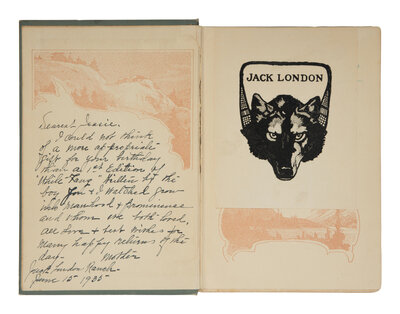 Dearest Jessie.
I could not think
of a more appropriate
gift for your birthday
than a 1st Edition of
White Fang written by the
boy You & I Watched grow
into Manhood & Prominence
and whom we both loved,
all Love & best wishes for
Many happy returns of the
day- Mother
Jack London Ranch-
June 15 1935
JACK LONDON